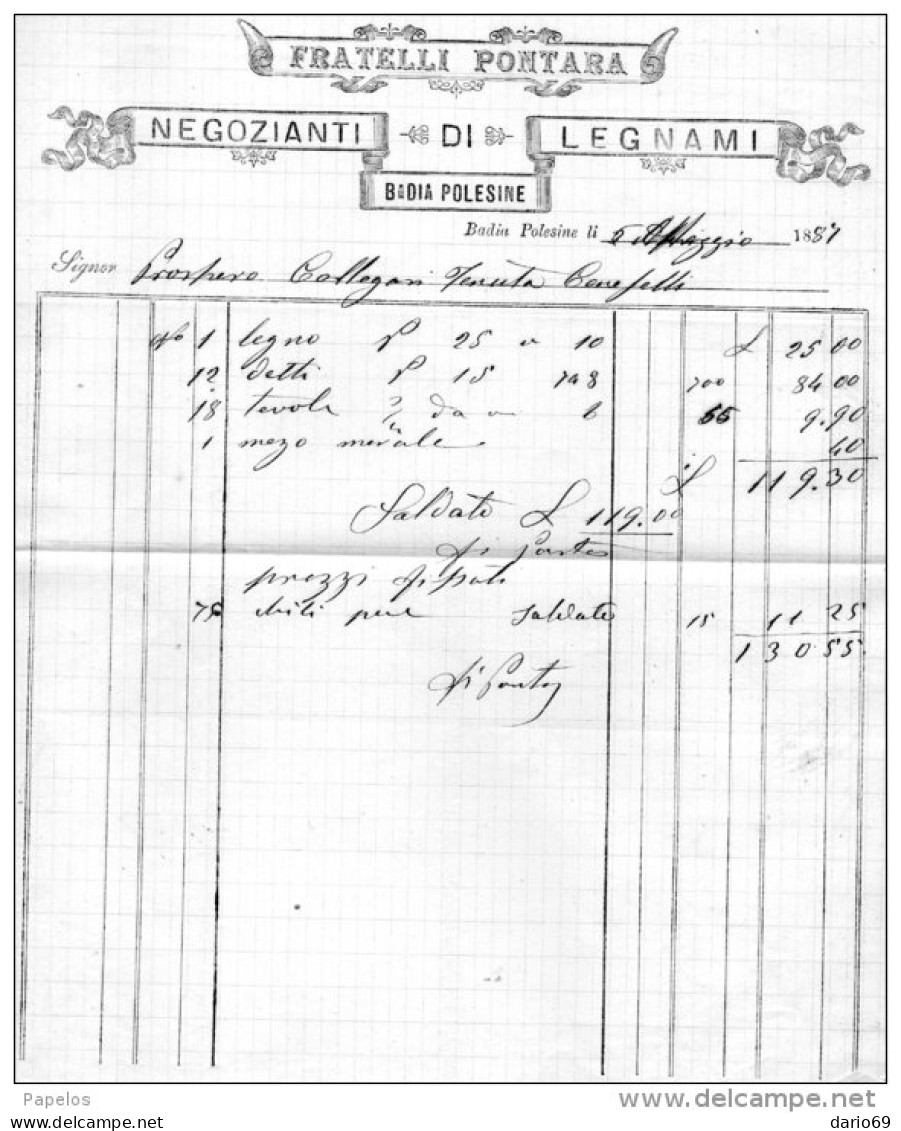 FRATELLI PONTARA
NEGOZIANTI DI LEGNAMI
BADIA POLESINE
Badia Polesine li 6 Maggio 1887
Signor Prospero Callegari Tenuta Ceneselli
No 1 legno P 25 a 10 £ 25 00
12 detti P 15 7 a 8 700 84 00
18 tevole da 6 55 9.90
1 mezo morale 40
£ 119.30
Saldato £ 119.00
prezzi
75 pene saldato 15 11 25
130 55
Papelos
delcampe.net
dario69